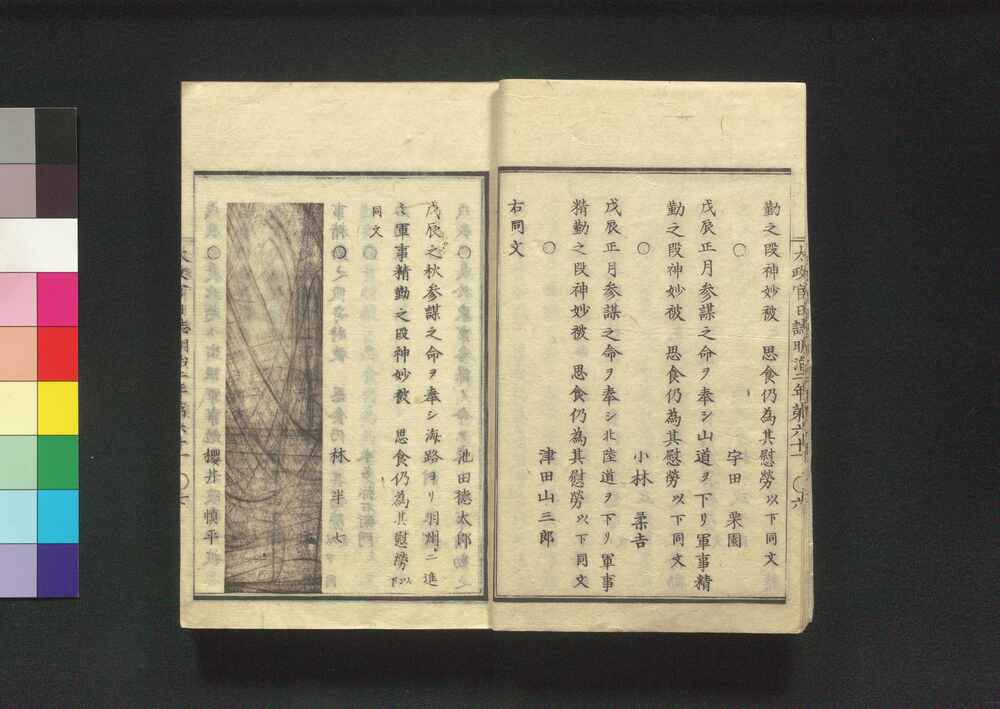 勤之段神妙被　思食仍為其慰勞以下同文
○　宇田　栗園
戊辰正月参謀之命ヲ奉シ山道ヲ下リ軍事精
勤之段神妙被　思食仍為其慰勞以下同文
○　小林　柔吉
戊辰正月参謀之命ヲ奉シ北陸道ヲ下リ軍事
精勤之段神妙被　思食仍為其慰勞以下同文
○　津田山三郎
右同文
太政官日誌明治二年第六十　○六
○　池田德太郎
戊辰之秋参謀之命ヲ奉シ海路ヨリ羽州ニ進
ミ軍事精勤之段神妙被　思食仍為其慰勞以下
同文
○　林　半七
○　櫻井　慎平